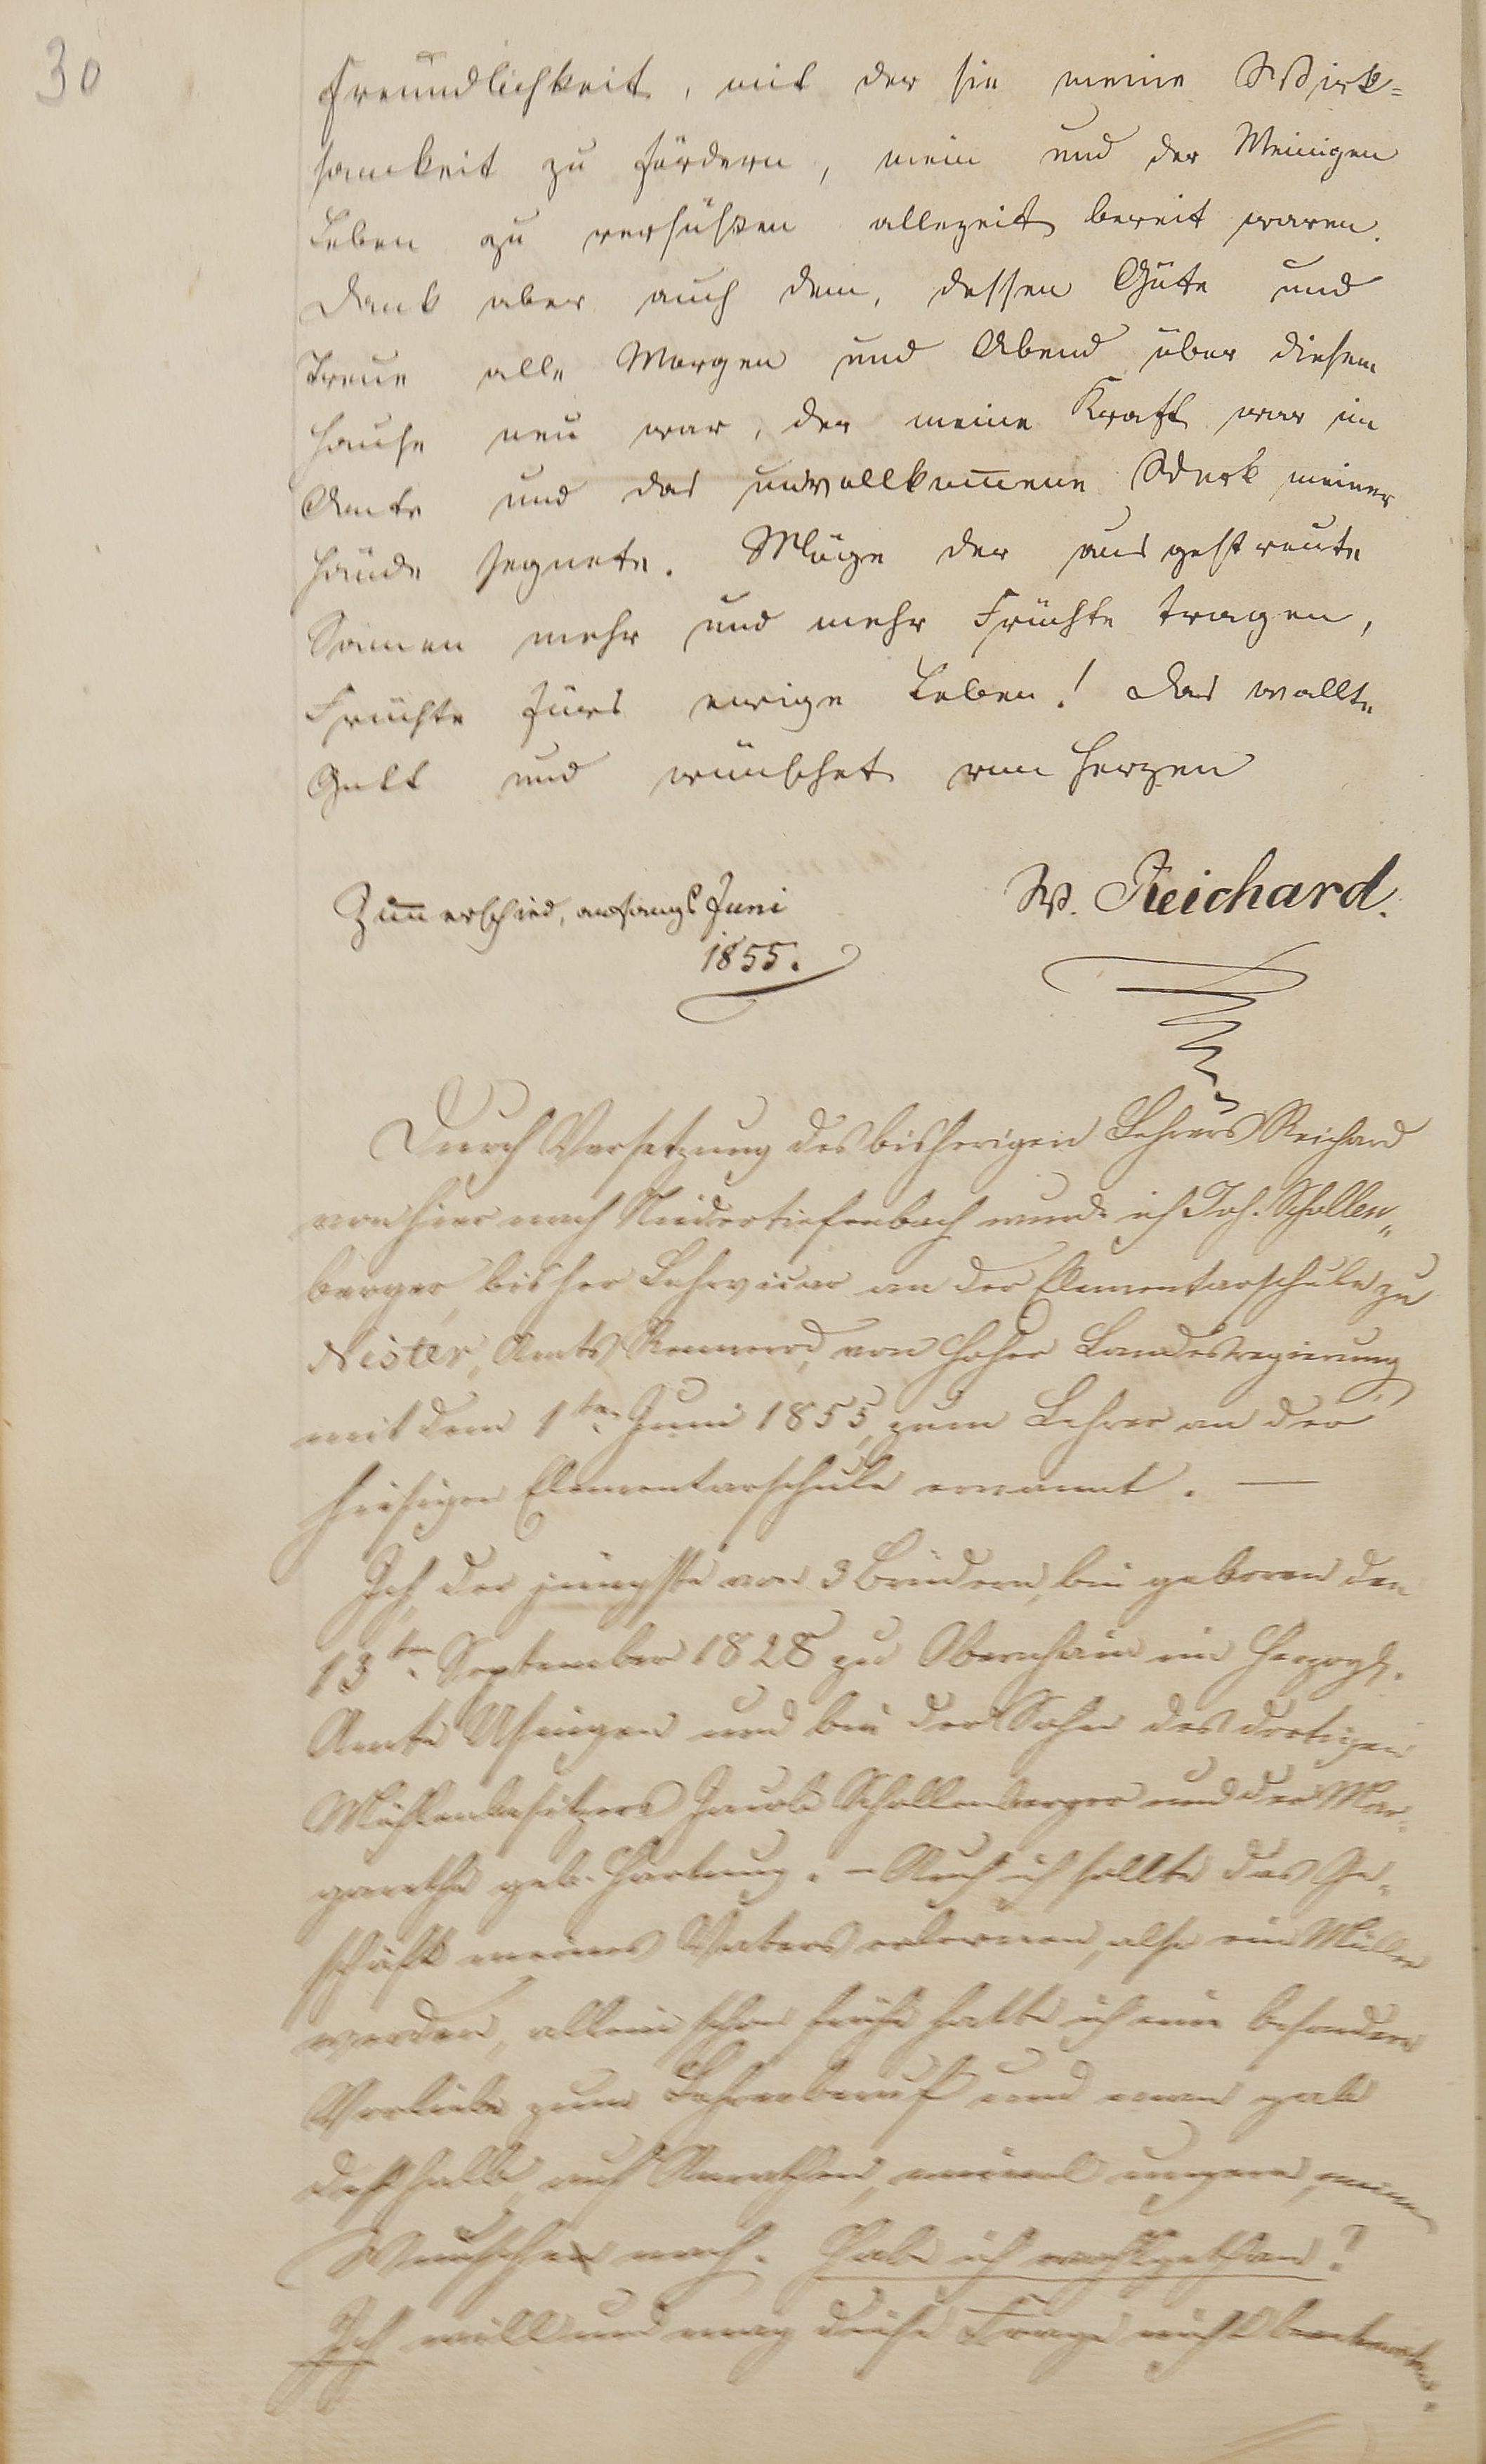 30
Freundlichkeit, mit der sie meine Wirk=
samkeit zu fördern, mein und der Meinigen
Leben zu versüßen allezeit bereit waren.
Dank aber auch dem, dessen Güte und
Treue alle Morgen und Abend über diesem
Hause neu war, der meine Kraft war im
Amte und das unvollkom̅ene Werk meiner
Hände segnete. Möge der ausgestreute
Samen mehr und mehr Früchte tragen,
Früchte fürs ewige Leben! Das wollte
Gott und wünschet von Herzen
W. Reichard.
Zim̅erschied, anfangs Juni
1855.
Durch Versetzung des bisherigen Lehrers Reichard
von hier nach Niedertiefenbach wurde ich Joh. Schollen„
berger, bisher Lehrvicar an der Elementarschule zu
Nister, Amts Rennerod, von hoher Landesregierung
mit dem 1ten Juni 1855, zum Lehrer an der
hiesigen Elementarschule ernannt. —
Ich der jüngste von 3 Brüdern, bin geboren den
13ten September 1828 zu Obernhain im Herzogl.
Amte Usingen und bin der Sohn des dortigen
Mühlenbesitzers Jacob Schollenberger und der Mar„
garethe geb. Hartung. – Auch ich sollte das Ge„
schäft meines Vaters erlernen, also ein Müller
werden, allein schon frühe hatte ich eine besondere
Vorliebe zum Lehrerberuf und man gab
deßhalb, auf Anrathen, ungern, meinem
Wunsche nach. Habe ich wohlgethan?
Ich will und mag diese Frage nicht beantworten.